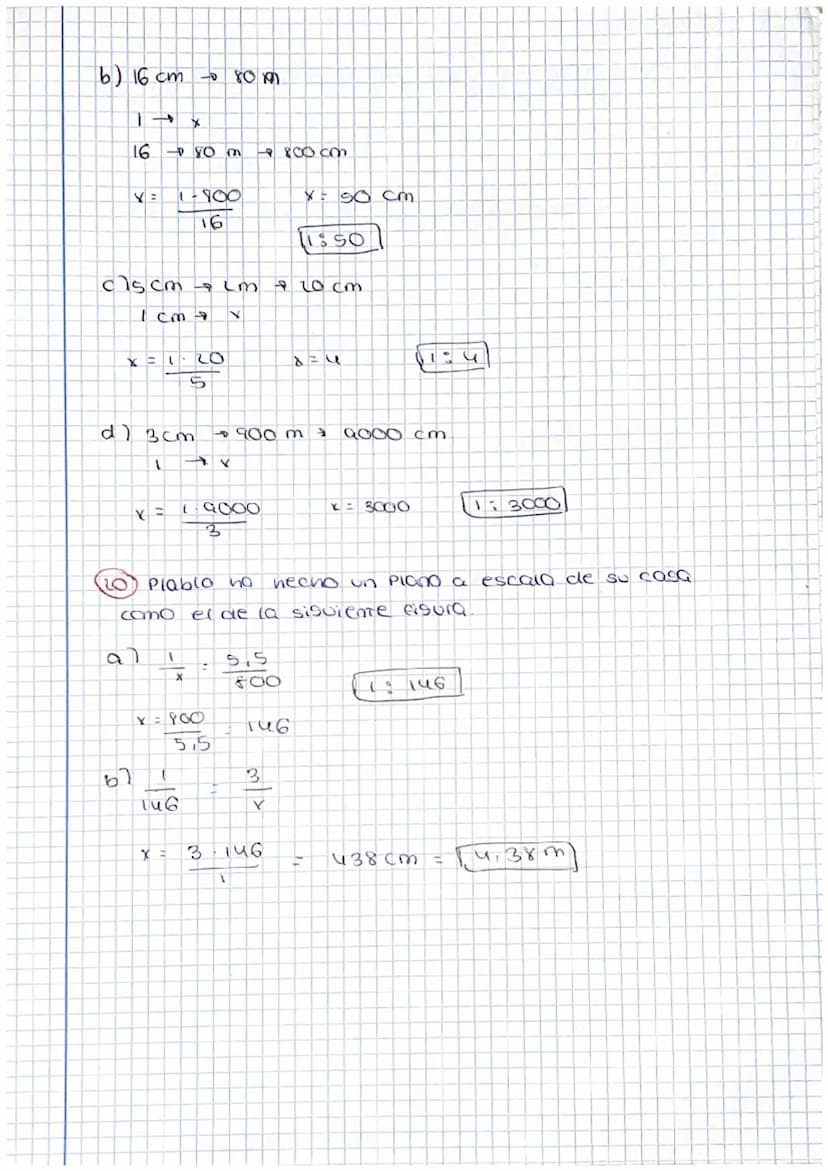 b) 16 cm → 80 m
1 → x
16 → 80 m → 800 cm
x = 1·800 / 16 x = 50 cm
1:50
c) 5 cm → 2m → 20 cm
1 cm → x
x = 1·20 / 5 x = 4 1:4
d) 3 cm → 900 m → 9000 cm
1 → x
x = 1·9000 / 3 x = 3000 1:3000
20 Plablo ha hecho un plano a escala de su casa
como el de la siguiente figura.
a) 1/x = 5,5/800 1:146
x = 800/5,5 = 146
b) 1/146 = 3/x
x = 3·146 / 1 = 438 cm = 4,38 m